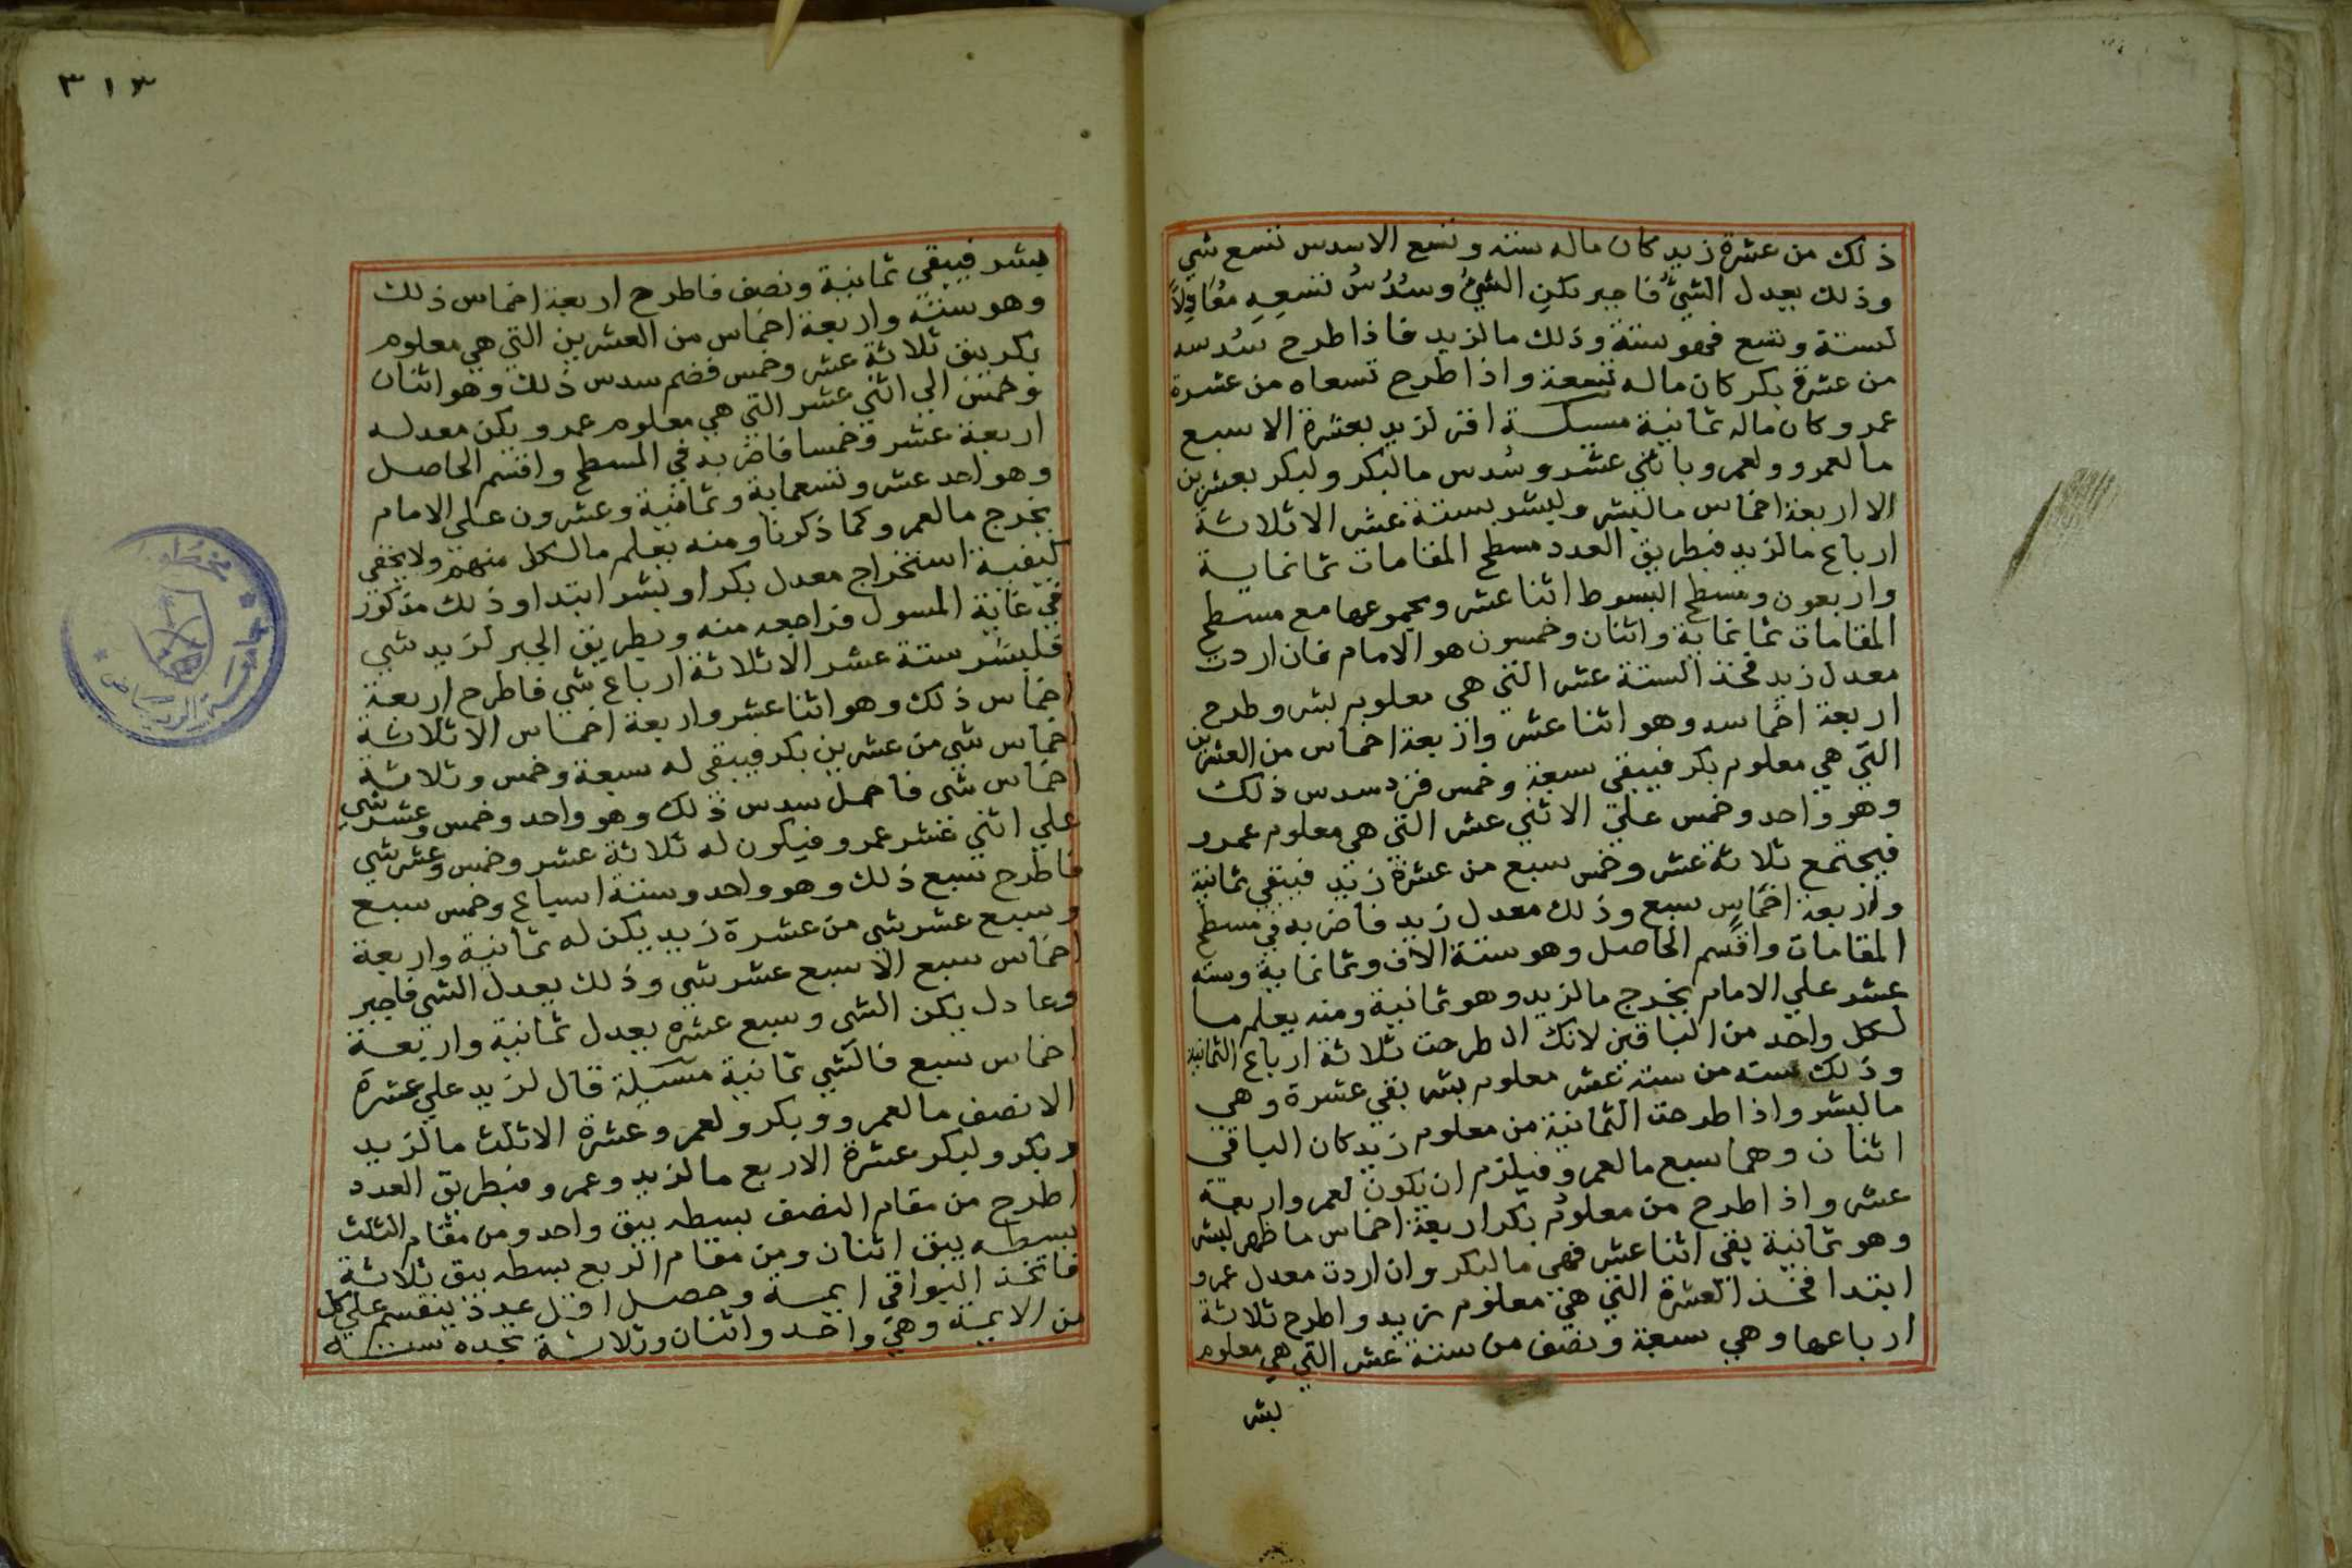 ذلك من عشرة زيد كان ماله ستة وتسع الاسدس تسع شي
وذلك يعدل الشئ فاجبر يكن الشئ وسدس تسعه معادلا
لستة وتسع فهو ستة وذلك ما لزيد فاذا طرح سدسه
من عشرة بكر كان ماله تسعة واذا طرح تسعاه من عشرة
عمرو كان ماله ثمانية مسئلة اقر لزيد بعشرة الا سبع
ما لعمرو ولعمرو باثني عشر وسدس ما لبكر ولبكر بعشرين
الا اربعة اخماس ما لبشر ولبشر بستة عشر الا ثلاثة
ارباع ما لزيد فبطريق العدد مسطح المقامات ثمانماية
واربعون ومسطح البسوط اثنا عشر ومجموعها مع مسطح
المقامات ثمانماية واثنان وخمسون هو الامام فان اردت
معدل زيد فخذ الستة عشر التي هي معلوم بشر وطرح
اربعة اخماسه وهو اثنا عشر واربعة اخماس من العشرين
التي هي معلوم بكر فيبقي سبعة وخمس فزد سدس ذلك
وهو واحد وخمس علي الاثني عشر التي هي معلوم عمرو
فيجتمع ثلاثة عشر وخمس سبع من عشرة زيد فيبقي ثمانية
واربعة اخماس سبع وذلك معدل زيد فاضربه في مسطح
المقامات واقسم الحاصل وهو ستة الاف وثمانماية وستة
عشر علي الامام يخرج ما لزيد وهو ثمانية ومنه يعلم ما
لكل واحد من الباقين لانك ان طرحت ثلاثة ارباع الثمانية
وذلك ستة من ستة عشر معلوم بشر بقي عشرة وهي
ما لبشر واذا طرحت الثمانية من معلوم زيد كان الباقي
اثنان وهما سبع ما لعمرو فيلزم ان يكون لعمرو اربعة
عشر واذا طرح من معلوم بكر اربعة اخماس ما ظهر لبشر
وهو ثمانية بقي اثنا عشر فهي ما لبكر وان اردت معدل عمرو
ابتدا فخذ العشرة التي هي معلوم زيد واطرح ثلاثة
ارباعها وهي سبعة ونصف من ستة عشر التي هي معلوم
بشر
٣١٣
بشر فيبقي ثمانية ونصف فاطرح اربعة اخماس ذلك
وهو ستة واربعة اخماس من العشرين التي هي معلوم
بكر يبق ثلاثة عشر وخمس فضم سدس ذلك وهو اثنان
وخمس الي اثني عشر التي هي معلوم عمرو يكن معدله
اربعة عشر وخمسا فاضربه في المسطح واقسم الحاصل
وهو احد عشر وتسعماية وثمانية وعشرون علي الامام
يخرج ما لعمرو كما ذكرنا ومنه يعلم ما لكل منهم ولا يخفي
كيفية استخراج معدل بكر او بشر ابتدا وذلك مذكور
في غاية المسول فراجعه منه وبطريق الجبر لزيد شي
فلبشر ستة عشر الا ثلاثة ارباع شي فاطرح اربعة
اخماس ذلك وهو اثنا عشر واربعة اخماس الا ثلاثة
اخماس شي من عشرين بكر فيبقي له سبعة وخمس وثلاثة
اخماس شي فاحمل سدس ذلك وهو واحد وخمس وعشر شي
علي اثني عشر عمرو فيكون له ثلاثة عشر وخمس وعشر شي
فاطرح سبع ذلك وهو واحد وستة اسباع وخمس سبع
وسبع عشر شي من عشرة زيد يكن له ثمانية واربعة
اخماس سبع الا سبع عشر شي وذلك يعدل الشي فاجبر
وعادل يكن الشي وسبع عشره يعدل ثمانية واربعة
اخماس سبع فالشي ثمانية مسيلة قال لزيد علي عشرة
الا نصف ما لعمرو وبكر ولعمرو عشرة الا ثلث ما لزيد
وبكر ولبكر عشرة الا ربع ما لزيد وعمرو فبطريق العدد
اطرح من مقام النصف بسطه يبق واحد ومن مقام الثلث
بسطه يبق اثنان ومن مقام الربع بسطه يبق ثلاثة
فاتخذ البواقي ايمة وحصل اقل عدد ينقسم علي كل
من الايمة وهي واحد واثنان وثلاثة تجده ستة